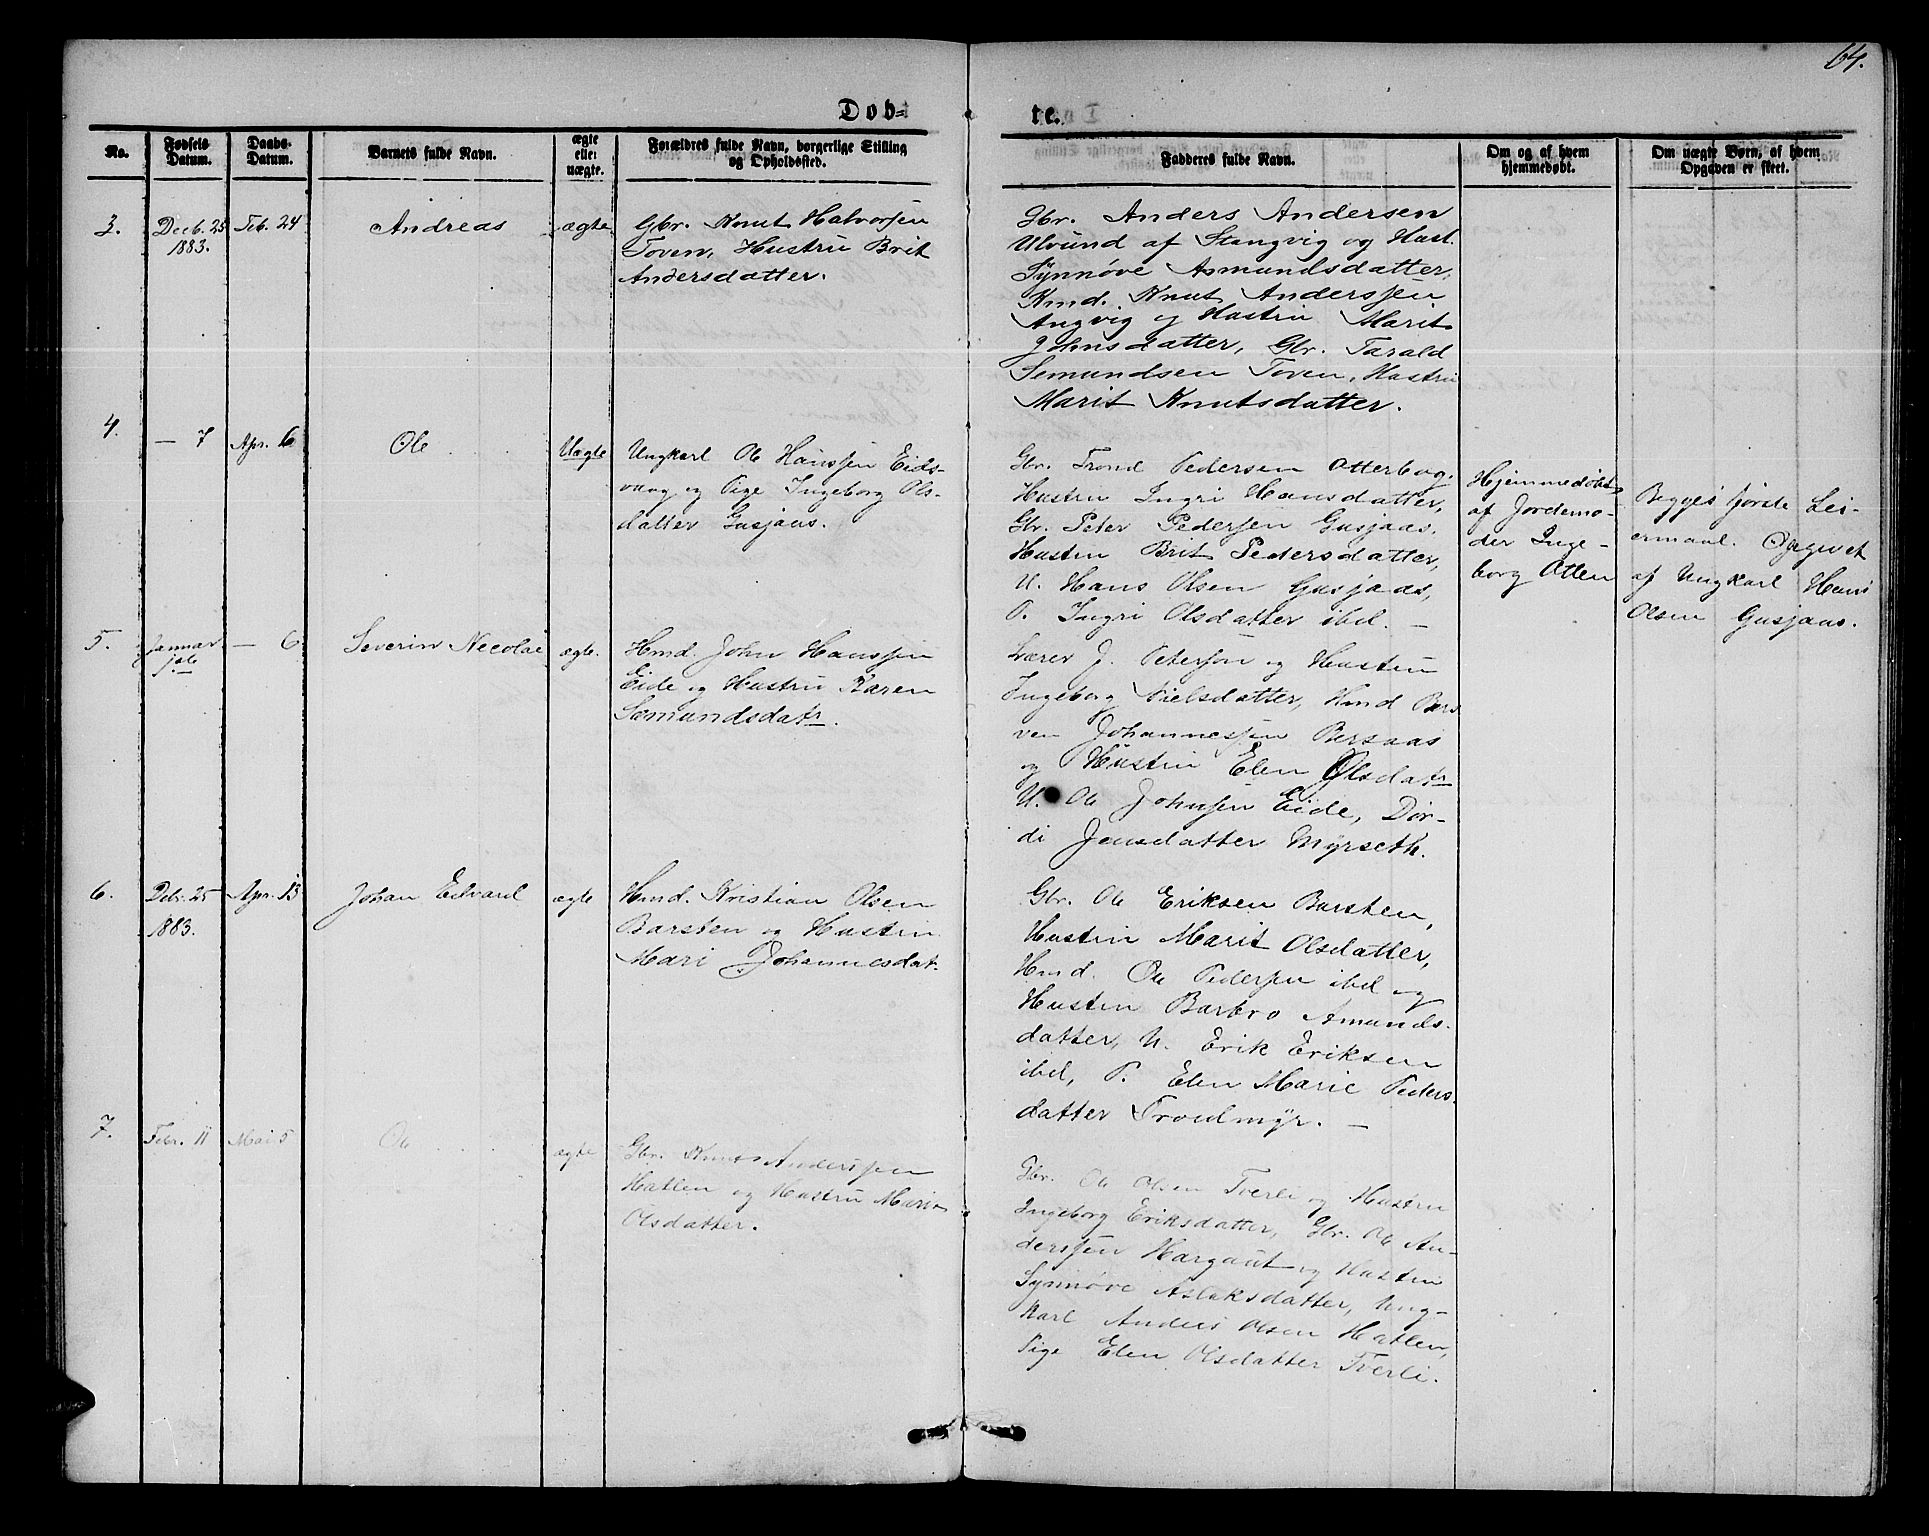 64.
Døb-
te.
No.
Fødsels Datum.
Daabs-Datum.
Barnets fulde Navn.
ægte eller uægte.
Forældres fulde Navn, borgerlige Stilling og Opholdssted.
Fadderes fulde Navn.
Om og af hvem hjemmedøbt.
Om uægte Børn, af hvem Opgaven er skeet.
3.
Decb. 25
1883.
Feb. 24
Andreas
ægte
Gbr. Knut Halvorsen
Toven, Hustru Brit
Andersdatter.
Gbr. Anders Andersen
Ulvund af Stangvig og Hust.
Synnøve Asmundsdatter,
Kmd. Knut Anderssen
Angvig og Hustru Marit
Johnsdatter, Gbr. Tarald
Semundsen Toven, Hustru
Marit Knutsdatter.
4.
— 7
Apr. 6
Ole
Uægte
Ungkarl Ole Hanssen Eids-
vaag og Pige Ingeborg Ols-
datter Gusjaas.
Gbr. Trond Pedersen Otterbog,
Hustru Ingri Hansdatter,
Gbr. Peter Pedersen Gusjaas,
Hustru Brit Pedersdatter,
U. Hans Olsen Gusjaas,
P. Ingri Olsdatter ibd. —
Hjemmedøbt
af Jordemo-
der Inge-
borg Otten
Begges første Lei-
ermaal. Opgivet
af Ungkarl Hans
Olsen Gusjaas.
5.
Januar
— 6
Severin Necolai
ægte.
Hmd. John Hanssen
Eide og Hustru Karen
Semundsdatr.
Lærer J. Peterson og Hustru
Ingeborg Nielsdatter, Hmd
Johannessen Bersaas
og Hustru Elen Olsdatr
U. Ole Johnsen Eide, Dor-
di Jensdatter Myrseth.
6.
Debr. 25
1883.
Apr. 13
Johan Edvard
ægte
Hmd. Kristian Olsen
Barsten og Hustru
Mari Johannesdat.
Gbr. Ole Eriksen Barsten,
Hustru Marit Olsdatter,
Hmd. Ole Pedersen ibd og
Hustru Barbro Amunds-
datter, U. Erik Eriksen
ibd, P. Elen Marie Peders-
datter Troedmyr. —
7.
Febr. 11
Mai 5
Ole
ægte
Gbr. Knut Anderssen
Hatlen og Hustru Marit
Olsdatter.
Gbr. Ole Olsen Tverli og Hustru
Ingeborg Eriksdatter, Gbr. Ole An-
derssen Hargaut og Hustru
Synnøve Aslaksdatter, Ung-
karl Anders Olsen Hatlen,
Pige Elen Olsdatter Tverli.